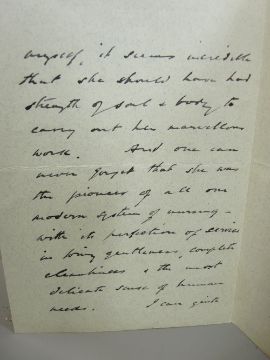 myself, it seems incredible
that she should have had
strength of soul & body to
carry out her marvellous
work. And one can
never forget that she was
the pioneer of all our
modern system of nursing –
with its perfection of service
in loving gentleness, complete
cleanliness & the most
delicate sense of human
needs. I can quite